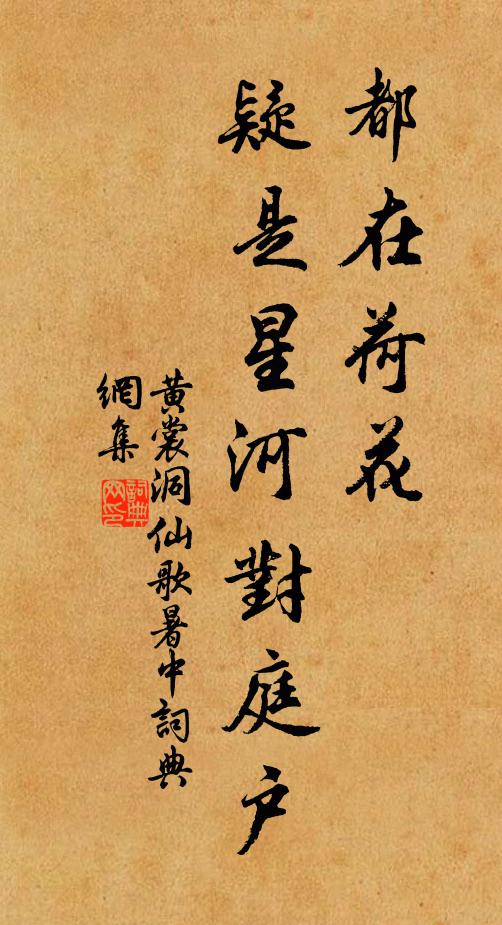 都在荷花
疑是星河對庭戶
黃裳洞仙歌暑中詞典
網集
詞典
网印